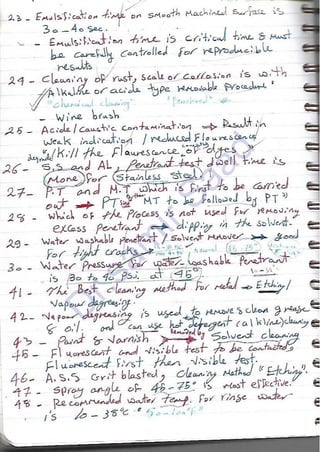 23 - Emulsification time on smooth machined surface is
30-40 sec.
- Emulsification time is critical time & must
be carefully controlled for reproducible
results
24 - Cleaning of rust, scale or corrosion is with
Alkaline or acide type removable procedure
"chemical cleaning"
- Wire brush
25 - Acide/caustic contamination → Result in
weak indication / reduced Flourescence
/ Kill the Flourescence of dyes
26 - S.S and AL, Penetrant test dwell time is
(None) for (Stainless Steel)
27 - P.T and M.T which is first to be carried
out → PT "MT to be followed by PT"
28 - Which of the Process is not used for removing
excess penetrant → dipping in the solvent.
29 - Water washable penetrant / solvent remover → good
for tight cracks
30 - Water Pressure for water washable penetrant
is 30 to 40 Psi. at 45°
41 - The Best cleaning method for metal → Etching/
Vapour degreasing.
42 - Vapour degreasing is used to remove & clean grease
& oil. and can use hot detergent (alkline) cleaning
43 - Paint & Varnish → Solvent cleaning
45 - Fluorescent and visible test to be contacted,
Fluorescent first then visible test.
46 - A.S.S Grit blasted, Cleaning Method "Etching".
47 - Spray angle of 45-75° is most effective.
48 - Recommended water temp. for rinse water
is 10-38°C